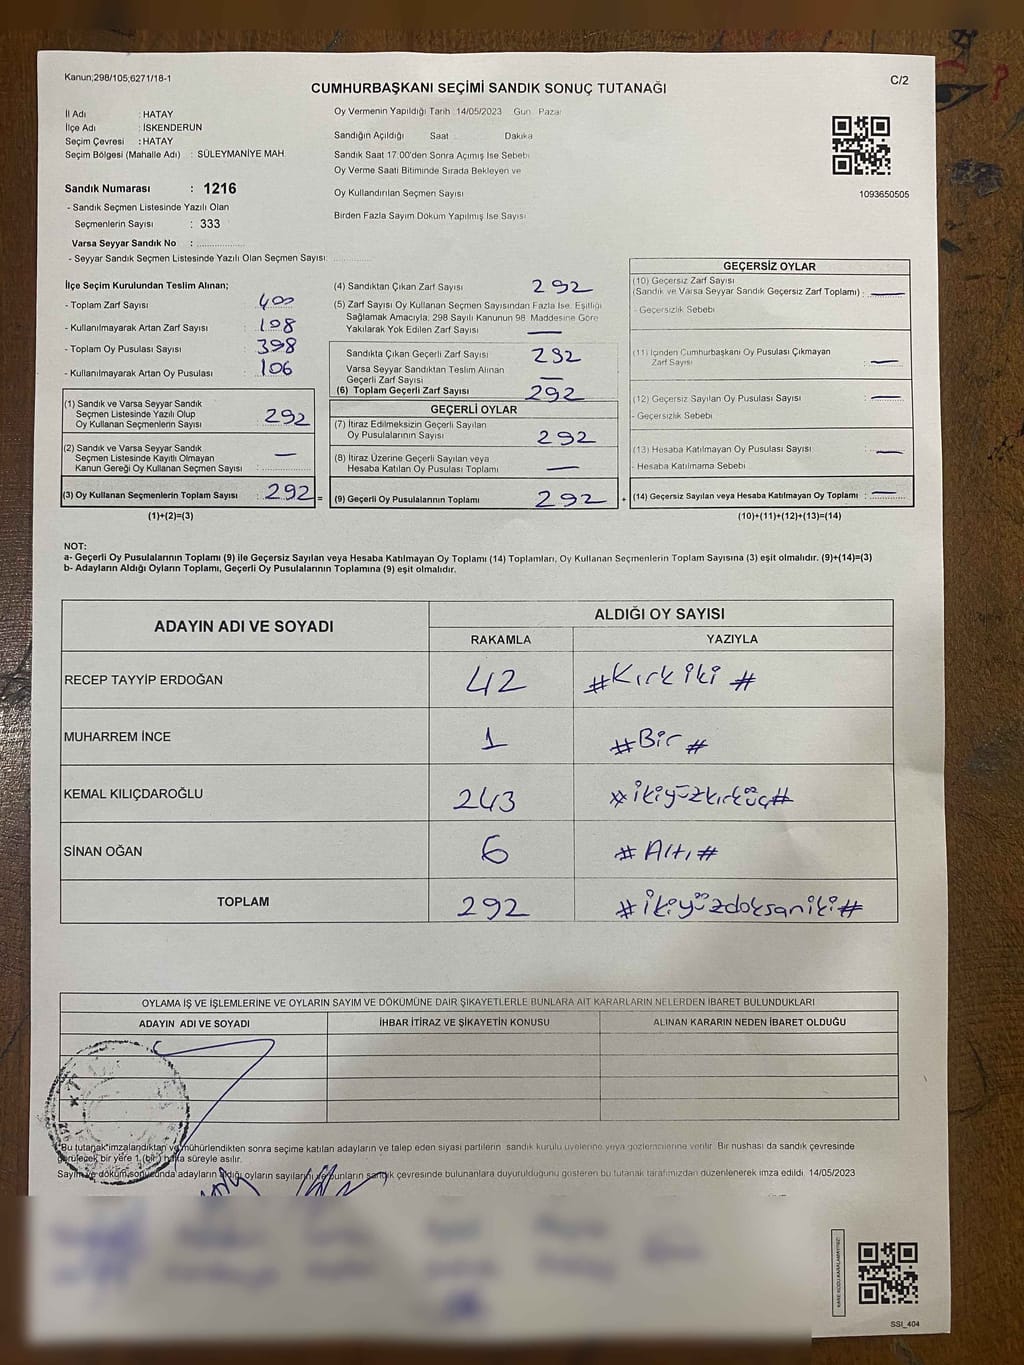 Kanun;298/105;6271/18-1
C/2
CUMHURBAŞKANI SEÇİMİ SANDIK SONUÇ TUTANAĞI
İl Adı : HATAY
İlçe Adı : İSKENDERUN
Seçim Çevresi : HATAY
Seçim Bölgesi (Mahalle Adı) : SÜLEYMANİYE MAH
Sandık Numarası : 1216
- Sandık Seçmen Listesinde Yazılı Olan
Seçmenlerin Sayısı : 333
Varsa Seyyar Sandık No : ................
- Seyyar Sandık Seçmen Listesinde Yazılı Olan Seçmen Sayısı: ............
Oy Vermenin Yapıldığı Tarih 14/05/2023 Gün Pazar
Sandığın Açıldığı Saat Dakika
Sandık Saat 17:00'den Sonra Açımış İse Sebebi
Oy Verme Saati Bitiminde Sırada Bekleyen ve
Oy Kullandırılan Seçmen Sayısı
Birden Fazla Sayım Döküm Yapılmış İse Sayısı
1093650505
İlçe Seçim Kurulundan Teslim Alınan;
- Toplam Zarf Sayısı : 400
- Kullanılmayarak Artan Zarf Sayısı : 108
- Toplam Oy Pusulası Sayısı : 398
- Kullanılmayarak Artan Oy Pusulası : 106
(1) Sandık ve Varsa Seyyar Sandık
Seçmen Listesinde Yazılı Olup
Oy Kullanan Seçmenlerin Sayısı : 292
(2) Sandık ve Varsa Seyyar Sandık
Seçmen Listesinde Kayıtlı Olmayan
Kanun Gereği Oy Kullanan Seçmen Sayısı : —
(3) Oy Kullanan Seçmenlerin Toplam Sayısı : 292 =
(1)+(2)=(3)
(4) Sandıktan Çıkan Zarf Sayısı 292
(5) Zarf Sayısı Oy Kullanan Seçmen Sayısından Fazla İse, Eşitliği
Sağlamak Amacıyla, 298 Sayılı Kanunun 98. Maddesine Göre
Yakılarak Yok Edilen Zarf Sayısı —
Sandıkta Çıkan Geçerli Zarf Sayısı 292
Varsa Seyyar Sandıktan Teslim Alınan
Geçerli Zarf Sayısı —
(6) Toplam Geçerli Zarf Sayısı 292
GEÇERLİ OYLAR
(7) İtiraz Edilmeksizin Geçerli Sayılan
Oy Pusulalarının Sayısı 292
(8) İtiraz Üzerine Geçerli Sayılan veya
Hesaba Katılan Oy Pusulası Toplamı —
(9) Geçerli Oy Pusulalarının Toplamı 292 +
GEÇERSİZ OYLAR
(10) Geçersiz Zarf Sayısı
(Sandık ve Varsa Seyyar Sandık Geçersiz Zarf Toplamı) : —
- Geçersizlik Sebebi
(11) İçinden Cumhurbaşkanı Oy Pusulası Çıkmayan
Zarf Sayısı : —
(12) Geçersiz Sayılan Oy Pusulası Sayısı : —
- Geçersizlik Sebebi
(13) Hesaba Katılmayan Oy Pusulası Sayısı : —
- Hesaba Katılmama Sebebi
(14) Geçersiz Sayılan veya Hesaba Katılmayan Oy Toplamı : —
(10)+(11)+(12)+(13)=(14)
NOT:
a- Geçerli Oy Pusulalarının Toplamı (9) ile Geçersiz Sayılan veya Hesaba Katılmayan Oy Toplamı (14) Toplamları, Oy Kullanan Seçmenlerin Toplam Sayısına (3) eşit olmalıdır. (9)+(14)=(3)
b- Adayların Aldığı Oyların Toplamı, Geçerli Oy Pusulalarının Toplamına (9) eşit olmalıdır.
ADAYIN ADI VE SOYADI ALDIĞI OY SAYISI
RAKAMLA YAZIYLA
RECEP TAYYİP ERDOĞAN 42 #Kırk iki #
MUHARREM İNCE 1 #Bir #
KEMAL KILIÇDAROĞLU 243 #ikiyüzkırküç#
SİNAN OĞAN 6 #Altı#
TOPLAM 292 #ikiyüzdoksaniki#
OYLAMA İŞ VE İŞLEMLERİNE VE OYLARIN SAYIM VE DÖKÜMÜNE DAİR ŞİKAYETLERLE BUNLARA AİT KARARLARIN NELERDEN İBARET BULUNDUKLARI
ADAYIN ADI VE SOYADI İHBAR İTİRAZ VE ŞİKAYETİN KONUSU ALINAN KARARIN NEDEN İBARET OLDUĞU
Bu tutanak imzalandıktan ve mühürlendikten sonra seçime katılan adayların ve talep eden siyasi partilerin sandık kurulu üyelerine veya gözlemcilerine verilir. Bir nushası da sandık çevresinde
görülecek bir yere 1 (bir) hafta süreyle asılır.
Sayım ve döküm sonucunda adayların aldığı oyların sayılarını ve bunların sandık çevresinde bulunanlara duyurulduğunu gösteren bu tutanak tarafımızdan düzenlenerek imza edildi. 14/05/2023
SSI_404